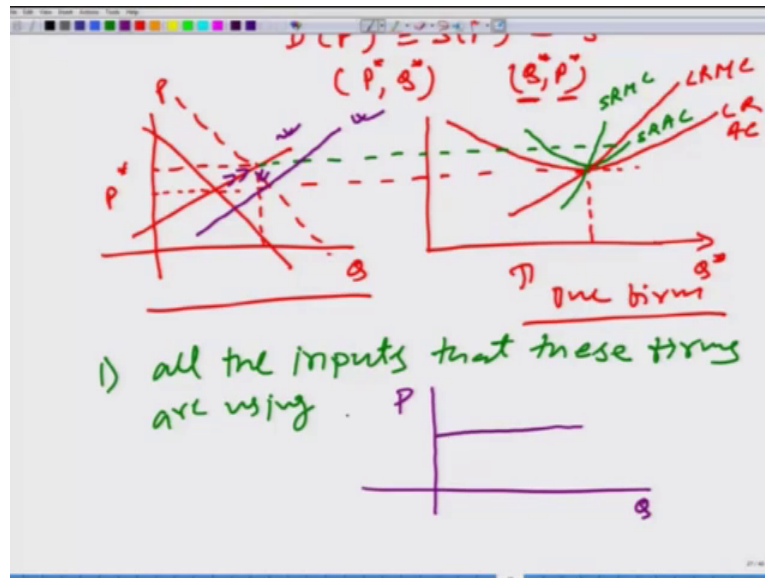 D(P) = S(P) = S
(P*, Q*) (Q*, P*)
P
P*
Q
SRMC
LRMC
SRAC
LR
AC
π
Q*
One firm
1) all the inputs that these firms
are using .
P
Q